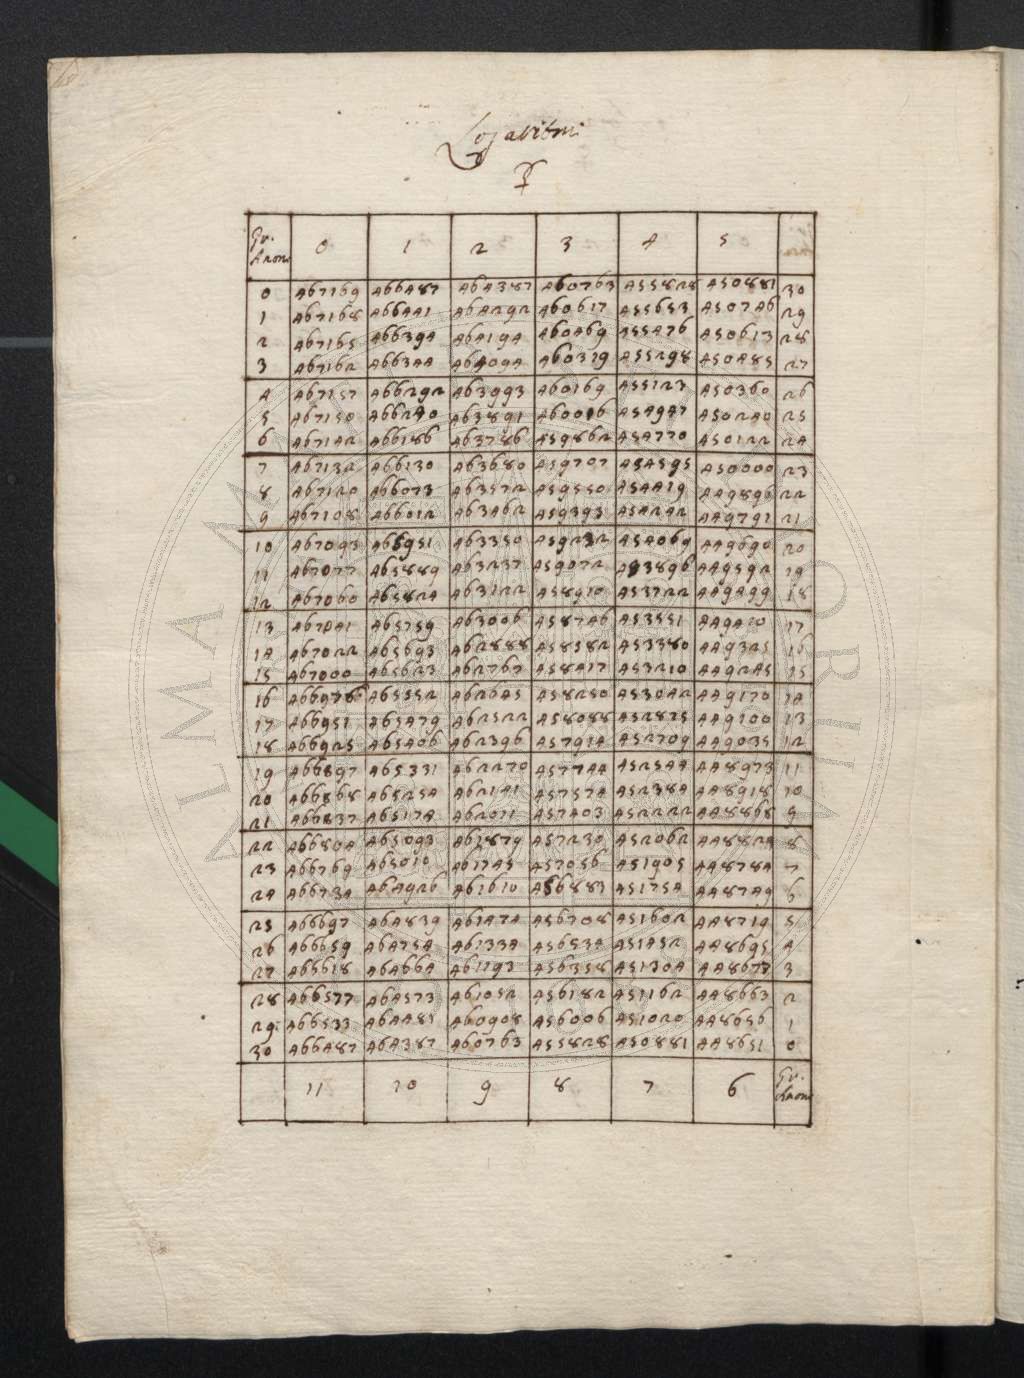 Logaritmi
♃
Gr. Anom 0 1 2 3 4 5
0 467169 466487 464387 460763 455828 450881 30
1 467168 466441 464292 460617 455653 450746 29
2 467165 466394 464194 460469 455476 450613 28
3 467162 466344 464094 460319 455298 450485 27
4 467157 466292 463993 460169 455123 450360 26
5 467150 466240 463891 460016 454947 450240 25
6 467142 466186 463786 459862 454770 450122 24
7 467132 466130 463680 459707 454595 450000 23
8 467120 466073 463572 459550 454419 449896 22
9 467108 466012 463462 459393 454242 449791 21
10 467093 465951 463350 459232 454069 449690 20
11 467077 465889 463237 459072 453896 449592 19
12 467060 465824 463122 458910 453722 449499 18
13 467041 465759 463006 458746 453551 449410 17
14 467022 465693 462888 458582 453380 449325 16
15 467000 465623 462767 458417 453210 449245 15
16 466976 465552 462645 458250 453042 449170 14
17 466951 465479 462522 458088 452875 449100 13
18 466925 465406 462396 457914 452709 449035 12
19 466897 465331 462270 457744 452544 448973 11
20 466868 465254 462141 457574 452384 448918 10
21 466837 465174 462011 457403 452222 448868 9
22 466804 465093 461879 457230 452062 448824 8
23 466769 465010 461745 457056 451905 448784 7
24 466734 464926 461610 456883 451754 448749 6
25 466697 464839 461474 456708 451602 448719 5
26 466659 464754 461334 456534 451452 448695 4
27 466618 464664 461193 456358 451304 448677 3
28 466577 464573 461052 456182 451162 448663 2
29 466533 464483 460908 456006 451020 448656 1
30 466487 464387 460763 455828 450881 448651 0
11 10 9 8 7 6 Gr. Anom